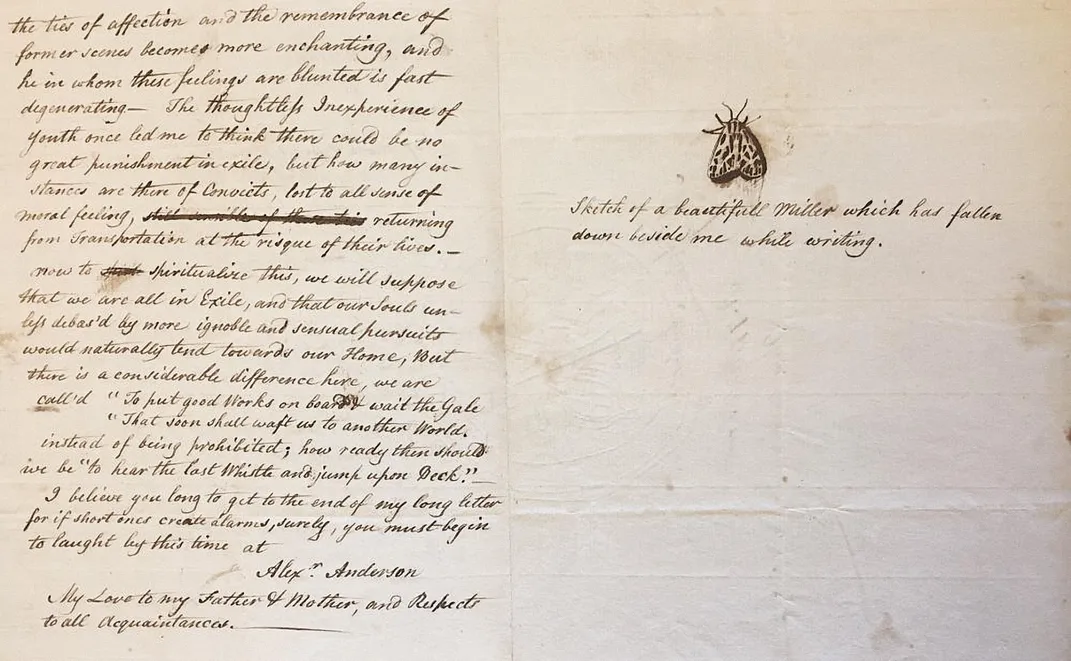 the ties of affection and the remembrance of
former scenes becomes more enchanting, and
he in whom these feelings are blunted is fast
degenerating— The thoughtless Inexperience of
Youth once led me to think there could be no
great punishment in exile, but how many in-
stances are there of Convicts, lost to all sense of
moral feeling, still sensible of these ties returning
from Transportation at the risque of their lives.—
now to spirit spiritualize this, we will suppose
that we are all in Exile, and that our Souls un-
less debas'd by more ignoble and sensual pursuits
would naturally tend towards our Home, But
there is a considerable difference here, we are
call'd "To put good Works on board & wait the Gale
"That soon shall waft us to another World.
instead of being prohibited; how ready then should
we be "to hear the last Whistle and jump upon Deck!"—
I believe you long to get to the end of my long letter
for if short ones create alarms, surely, you must begin
to laught by this time at
Alexr. Anderson
My Love to my Father & Mother, and Respects
to all Acquaintances.
Sketch of a beautifull Miller which has fallen
down beside me while writing.